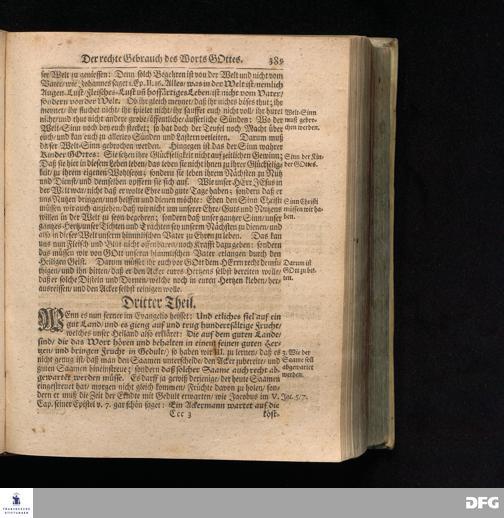 Der rechte Gebrauch des Worts GOttes. 389
ser Welt zu geniessen: Denn solch Begehren ist von der Welt und nicht vom
Vater/ wie Johannes saget 1. Ep. II. 16. Alles/ was in der Welt ist/ nemlich
Augen-Lust/ Fleisches-Lust uñ hoffärtiges Leben/ ist nicht vom Vater/
sondern von der Welt. Ob ihr gleich meynet/ daß ihr nichts böses thut; ihr
meynet/ ihr fluchet nicht/ ihr spielet nicht/ ihr sauffet euch nicht voll/ ihr huret
nicht/ und thut nicht andere grobe/ öffentliche/ äusserliche Sünden: Wo der
Welt-Sinn noch bey euch stecket; so hat doch der Teufel noch Macht über
euch/ und kan euch zu allerley Sünden und Lastern verleiten. Darum muß
dieser Welt-Sinn gebrochen werden. Hingegen ist das der Sinn wahrer
Kinder GOttes: Sie setzen ihre Glückseligkeit nicht auf zeitlichen Gewinn;
Daß sie hier in diesem Leben leben/ das setzen sie nicht ihnen zu ihrer Glückselig-
keit/ zu ihrem eigenen Wohlseyn; sondern sie leben ihrem Nächsten zu Nutz
und Dienst/ und denselben opffern sie sich auf. Wie unser HErr JEsus in
der Welt war/ nicht daß er wolte Ehre und gute Tage haben; sondern daß er
uns Nutzen bringen/ uns helffen und dienen möchte: Eben den Sinn Christi
müssen wir auch anziehen/ daß wir nicht um unserer Ehre/ Guts und Nutzens
willen in der Welt zu seyn begehren; sondern daß unser gantzer Sinn/ unser
gantzes Hertz/ unser Tichten und Trachten sey unserm Nächsten zu dienen/ und
also in dieser Welt unserm himmlischen Vater zu Ehren zu leben. Das kan
uns nun Fleisch und Blut nicht offenbaren/ noch Krafft dazu geben: sondern
das müssen wir von GOtt unserm himmlischen Vater erlangen durch den
Heiligen Geist. Darum müsset ihr euch vor GOtt dem HErrn recht demü-
thigen/ und ihn bitten/ daß er den Acker eures Hertzens selbst bereiten wolle/
daß er solche Disteln und Dornen/ welche noch in euren Hertzen kleben/ her-
ausreissen/ und den Acker selbst reinigen wolle.
Welt-Sinn
muß gebro-
chen werden.
Sinn der Kin-
der GOttes.
Sinn Christi
müssen wir ha-
ben.
Darum ist
GOtt zu bit-
ten.
Dritter Theil.
WEnn es nun ferner im Evangelio heisset: Und etliches fiel auf ein
gut Land/ und es gieng auf und trug hundertfältige Frucht/
welches unser Heiland also erkläret: Die auf dem guten Lande
sind/ die das Wort hören und behalten in einem feinen guten Her-
tzen/ und bringen Frucht in Gedult/ so haben wir III. zu lernen/ daß es
nicht genug ist/ daß man den Saamen unterscheide/ den Acker zubereite/ und
guten Saamen hineinstreue; sondern daß solcher Saame auch recht ab-
gewartet werden müsse. Es darf ja gewiß derjenige/ der heute Saamen
eingestreuet hat/ morgen nicht gleich kommen/ Früchte davon zu holen/ son-
dern er muß die Zeit der Erndte mit Gedult erwarten/ wie Jacobus im V.
Cap. seiner Epistel v. 7. gar schön saget: Ein Ackermann wartet auf die
3. Wie der
Saame soll
abgewartet
werden.
Jac. 5/7.
Ccc 3 köst-
FRANCKESCHE
STIFTUNGEN
DFG